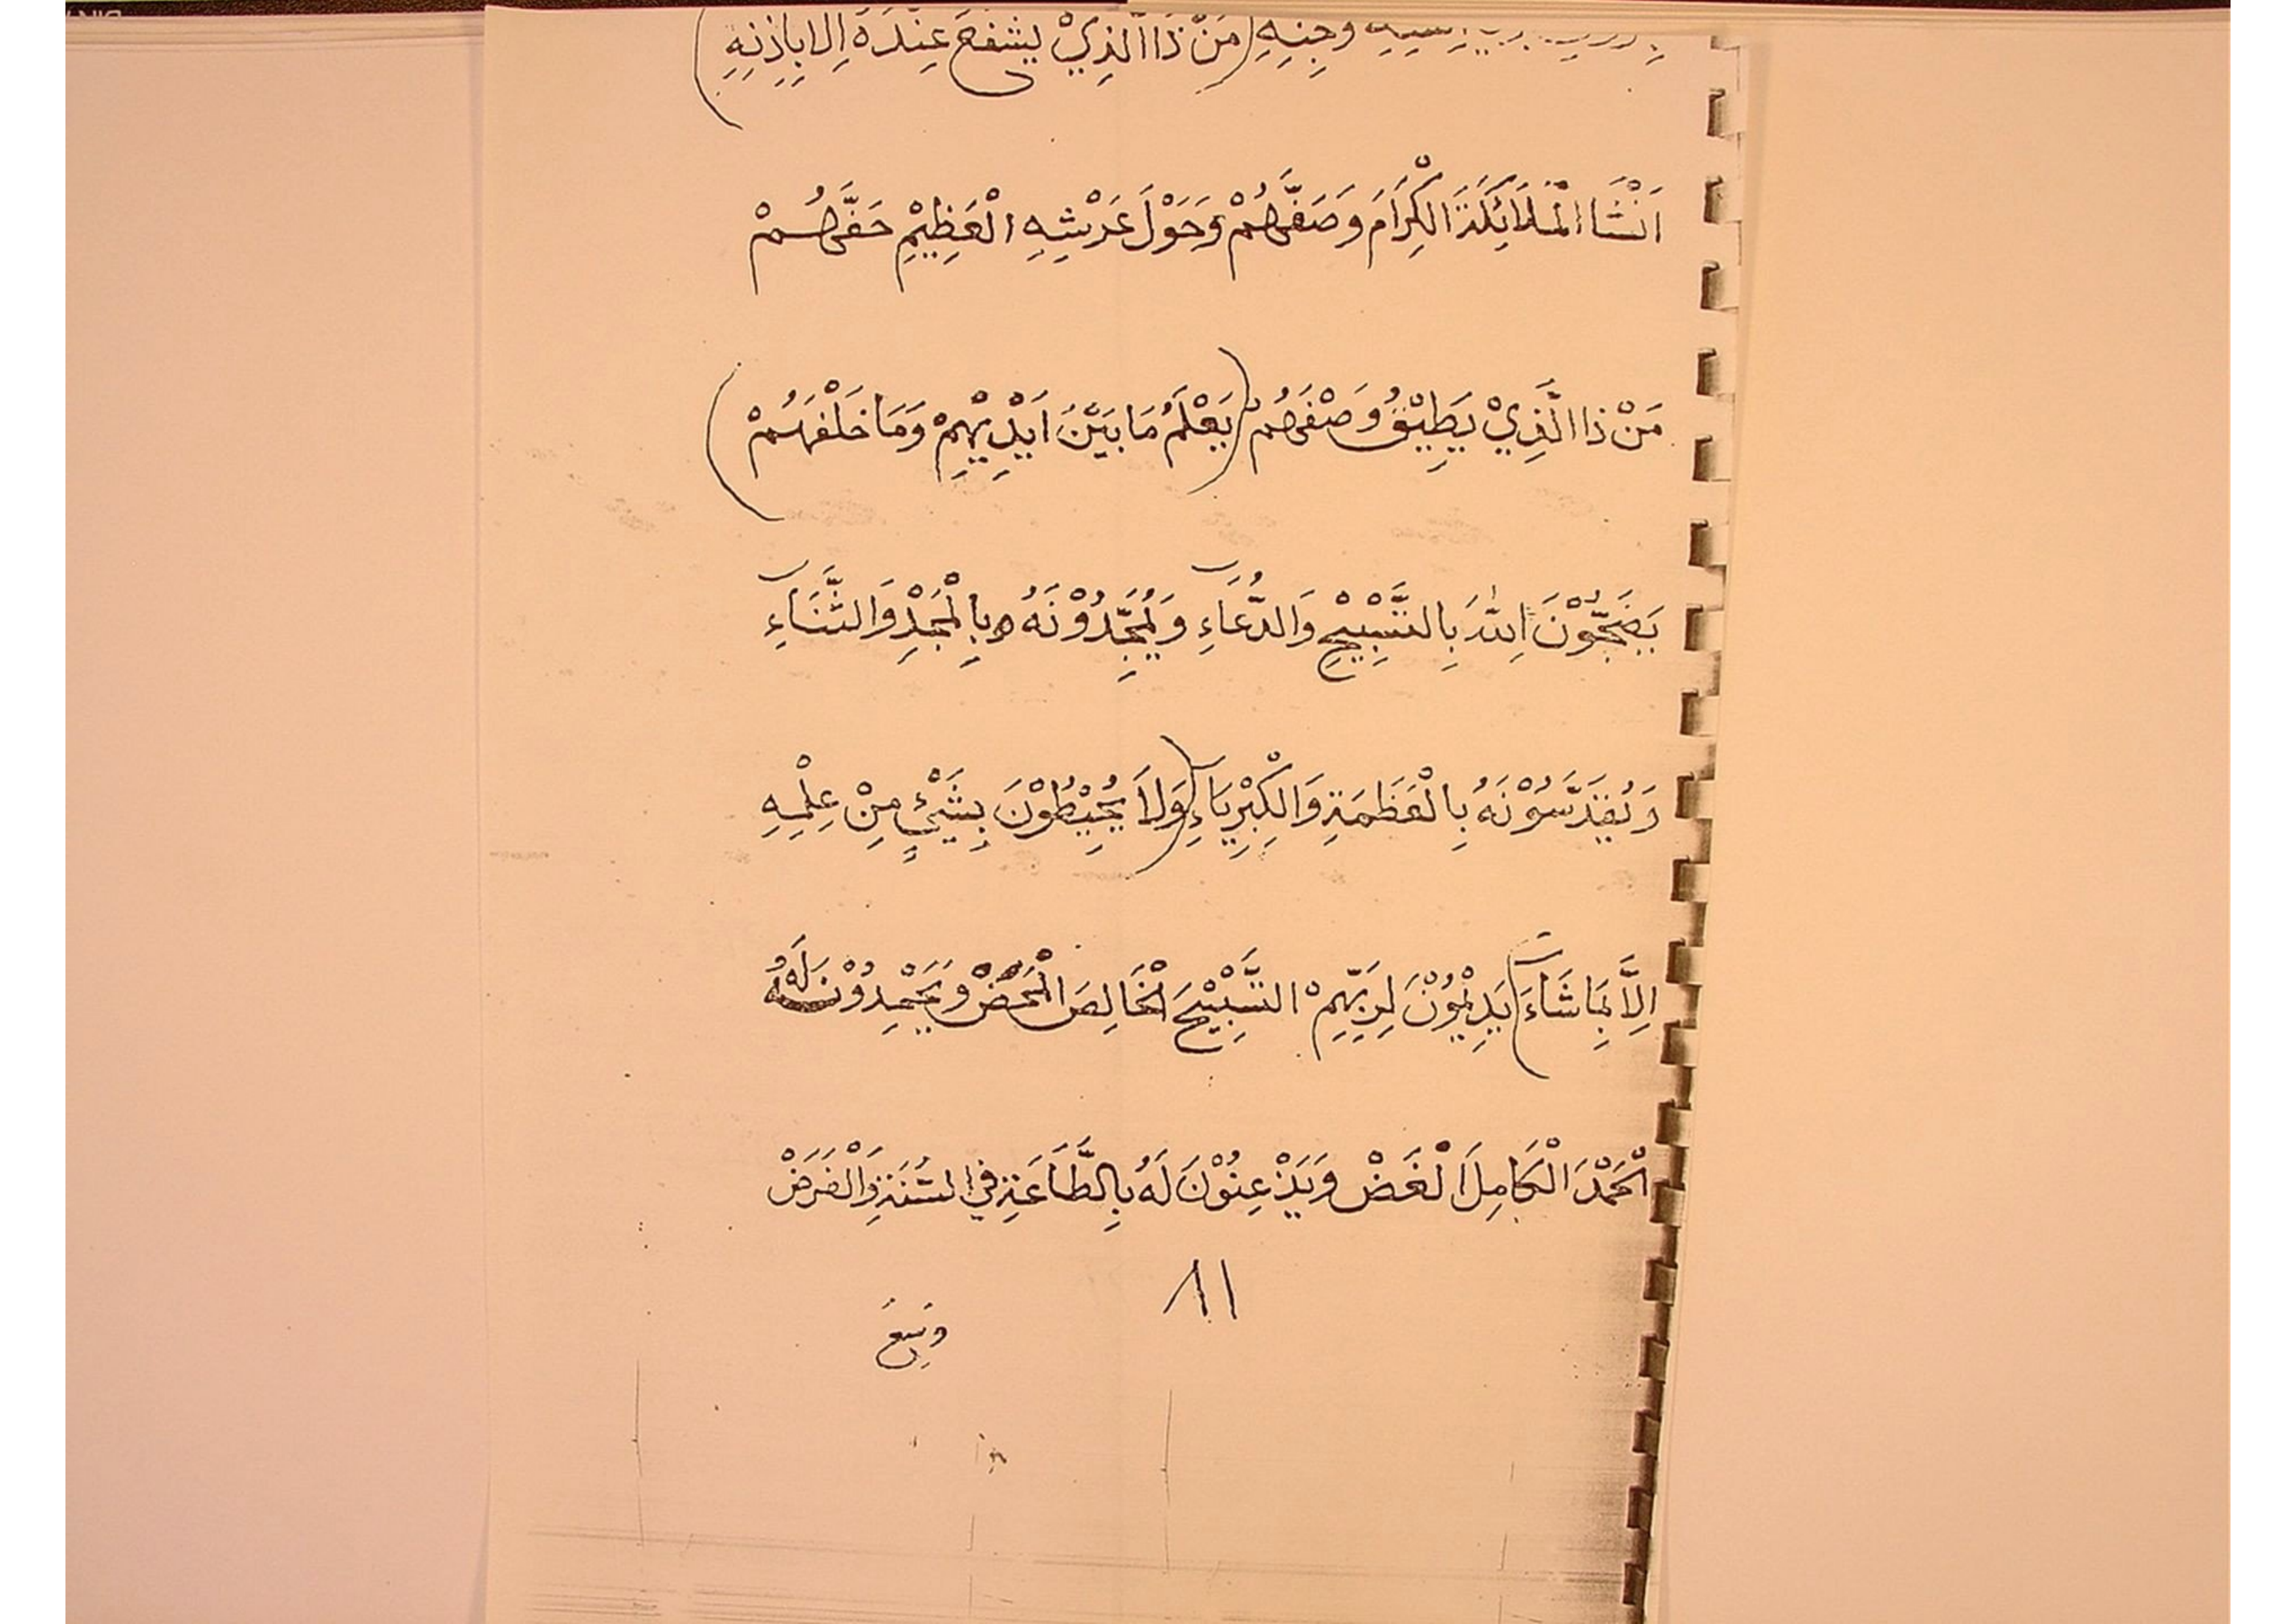 وَجِنِهِ (مَنْ ذَا الَّذِيْ يَشْفَعُ عِنْدَهُ اِلَا بِاِذْنِهِ)
اَنْشَا الْمَلَائِكَةَ الْكِرَامَ وَصَفَّهُمْ وَحَوْلَ عَرْشِهِ الْعَظِيْمِ حَفَّهُمْ
مَنْ ذَا الَّذِيْ يَطِيْقُ وَصْفَهُمْ (يَعْلَمُ مَا بَيْنَ اَيْدِيْهِمْ وَمَا خَلْفَهُمْ)
يَضِجُّوْنَ اِللّٰهَ بِالتَّسْبِيْحِ وَالدُّعَاءِ وَيُمَجِّدُوْنَهُ بِالْمَجْدِ وَالثَّنَاءِ
وَيُقَدِّسُوْنَهُ بِالْعَظَمَةِ وَالْكِبْرِيَاءِ (وَلَا يُحِيْطُوْنَ بِشَيْءٍ مِنْ عِلْمِهِ
اِلَّا بِمَا شَاءَ) يَدِيْمُوْنَ لِرَبِّهِمْ التَّسْبِيْحَ الْخَالِصَ الْمَحَضْ وَيَحْمِدُوْنَ لَهُ
الْحَمْدَ الْكَامِلَ الْغَضْ وَيَذْعِنُوْنَ لَهُ بِالطَّاعَةِ فِي السُّنَةِ وَالْفَرَضْ
٨١
وَسِعَ